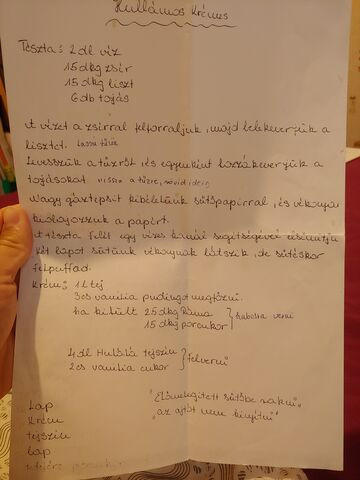 Hullámos Krémes
Tészta: 2 dl víz
15 dkg zsír
15 dkg liszt
6 db tojás
A vizet a zsírral felforraljuk, majd belekeverjük a
lisztet. Lassú tűzön
Levesszük a tűzről, és egyenként hozzákeverjük a
tojásokat vissza a tűzre, rövid ideig
Nagy gáztepsit kibélelünk sütőpapírral, és vékonyan
kiolajozzuk a papírt.
A tészta felét egy vizes kanál segítségével elsimítjuk
két lapot sütünk vékonynak látszik, de sütéskor
felpuffad.
Krém: 1 l tej
3 cs vanília pudingot megfőzni.
ha kihűlt 25 dkg Ráma
15 dkg porcukor } habosra verni
4 dl Hulálá tejszín
2 cs vanília cukor } felverni
Lap
Krém
tejszín
lap
"Előmelegített sütőbe rakni"
"az ajtót nem kinyitni"
tetejére porcukor